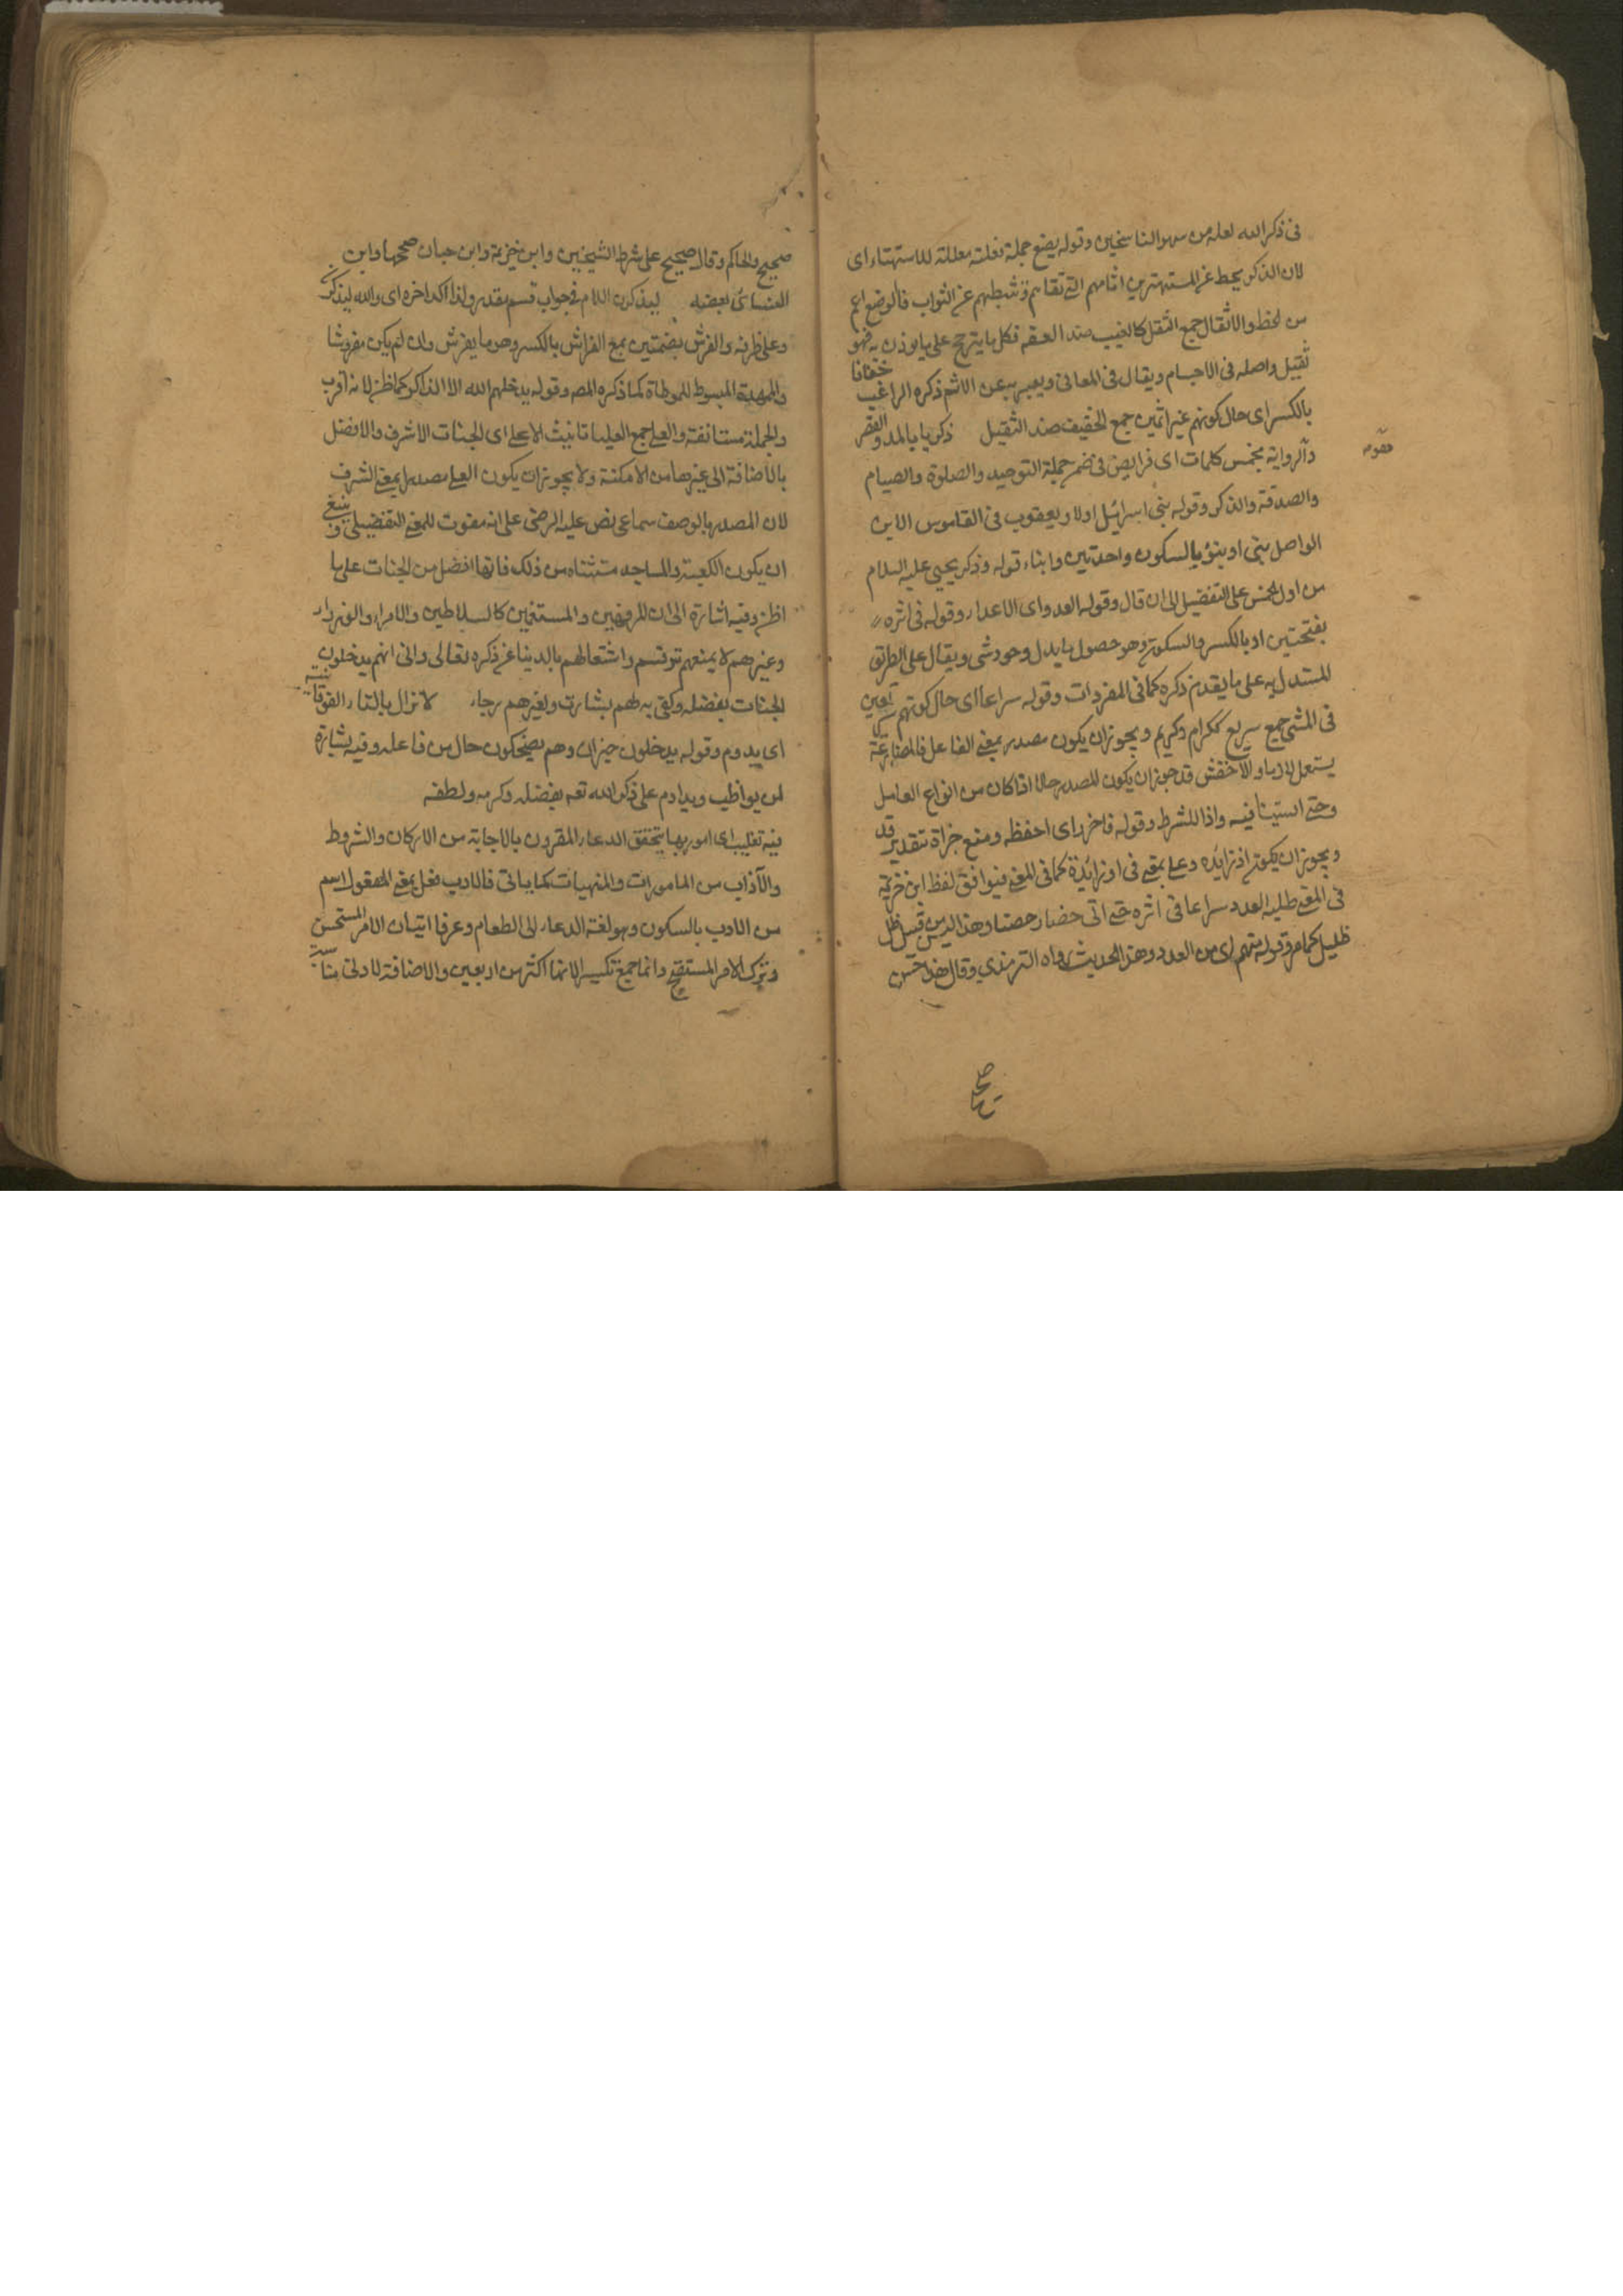 فى ذكر الله لعله من سهو الناسخين وقوله يضع جملة فعلية معللة للاستهتار اى
لان الذكر يحط عن المستهترين اثامهم التى تقاهم وتثبطهم عن الثواب فالوضع اعم
من الحط والاثقال جمع الثقل كالعنب ضد الخفة فكل ما يترجح على ما يوزن به فهو
ثقيل واصله فى الاجسام ويقال فى المعانى ويعبر به عن الاثم ذكره الراغب خفافا
بالكسر اى حال كونهم غير اثمين جمع الخفيف ضد الثقيل زكريا بالمد والقصر
والرواية بخمس كلمات اى فرايض فى ضمن جملة التوحيد والصلوة والصيام
مقصوره
والصدقة والذكر وقوله بنى اسرائيل اولاد يعقوب فى القاموس الابن
الواصل بنى او بنو بالسكون واحدتين وابناء قوله وذكر يحيى عليه السلام
من اول الخمس على التفضيل الى ان قال وقوله العدو اى الاعداء وقوله فى اثره
بفتحتين او بالكسر والسكون وهو حصول ما يدل وجود شى ويقال على الطريق
المستدل به على ما يقدم ذكره كما فى المفردات وقوله سراعا اى حال كونهم سريعين
فى المشى جمع سريع ككرام وكريم ويجوز ان يكون مصدر بمعنى الفاعل فالمضارعة
يستعمل لازما والاخفش قد جوز ان يكون المصدر حالا اذا كان من انواع العامل
وحتى استينافية واذا للشرط وقوله فاحرز اى احفظ ومنع جزاه بتقدير قد
ويجوز ان يكون اذ زايده وعلى بمعنى فى او زائدة كما فى المغنى فيوافق لفظ ابن خزيمة
فى المعنى طلبه العدو سراعا فى اثره حتى اتى حصنا حصينا وهذا الدين قبيل ظل
ظليل كما مر وقوله منهم اى من العدو وهذا الحديث رواه الترمذى وقال هذا حسن
صحيح
صحيح والحاكم وقال صحيح على شرط الشيخين وابن خزيمة وابن حبان صححها وابن
النسائى بعضه ليذكرن اللام فى جواب قسم مقدر ولذا اكد اخره اى والله ليذكرن
وعلى ظرفه والفرش بضمتين جمع الفراش بالكسر وهو ما يفرش وان لم يكن مفروشا
والممهدة المبسوط للموطاة كما ذكره المصه وقوله يدخلهم الله الا الذاكر كما ظن لانه اقرب
والجملة مستانفة والعلى جمع العليا تانيث الاعلى اى الجنات الاشرف والافضل
بالاضافة الى غيرها من الامكنة ولا يجوز ان يكون العلى مصدرا بمعنى الشرف
لان المصدر بالوصف سماعى نص عليه الرضى على انه مفوت للمعنى التفضيلى وينبغى
ان يكون الكعبة والمساجد مستثناه من ذلك فانها افضل من الجنات على ما
اظن وفيه اشارة الى ان المرفهين والمستغنين كالسلاطين والامراء والوزراء
وغيرهم لا يمنعهم توقسم واشتغالهم بالدنيا عن ذكره تعالى وانى انهم يدخلون
الجنات بفضله وكفى به لهم بشارت ولغيرهم رجاء لا تزال بالتاء الفوقانية
اى يدوم وقوله يدخلون خبر ان وهم يضحكون حال من فاعله وفيه بشارة
لمن يواظب ويداوم على ذكر الله تعه بفضله وكرمه ولطفه
فيه تغليب اى امور بها يتحقق الدعاء المقرون بالاجابة من الاركان والشروط
والآداب من المامورات والمنهيات كما ياتى فالادب فعل بمعنى المفعول اسم
من الادب بالسكون وهو لغة الدعاء الى الطعام وعرفا اتيان الامر المستحسن
وترك الامر المستقبح وانما جمع تكسير لانها اكثر من اربعين والاضافة لادنى مناسبة